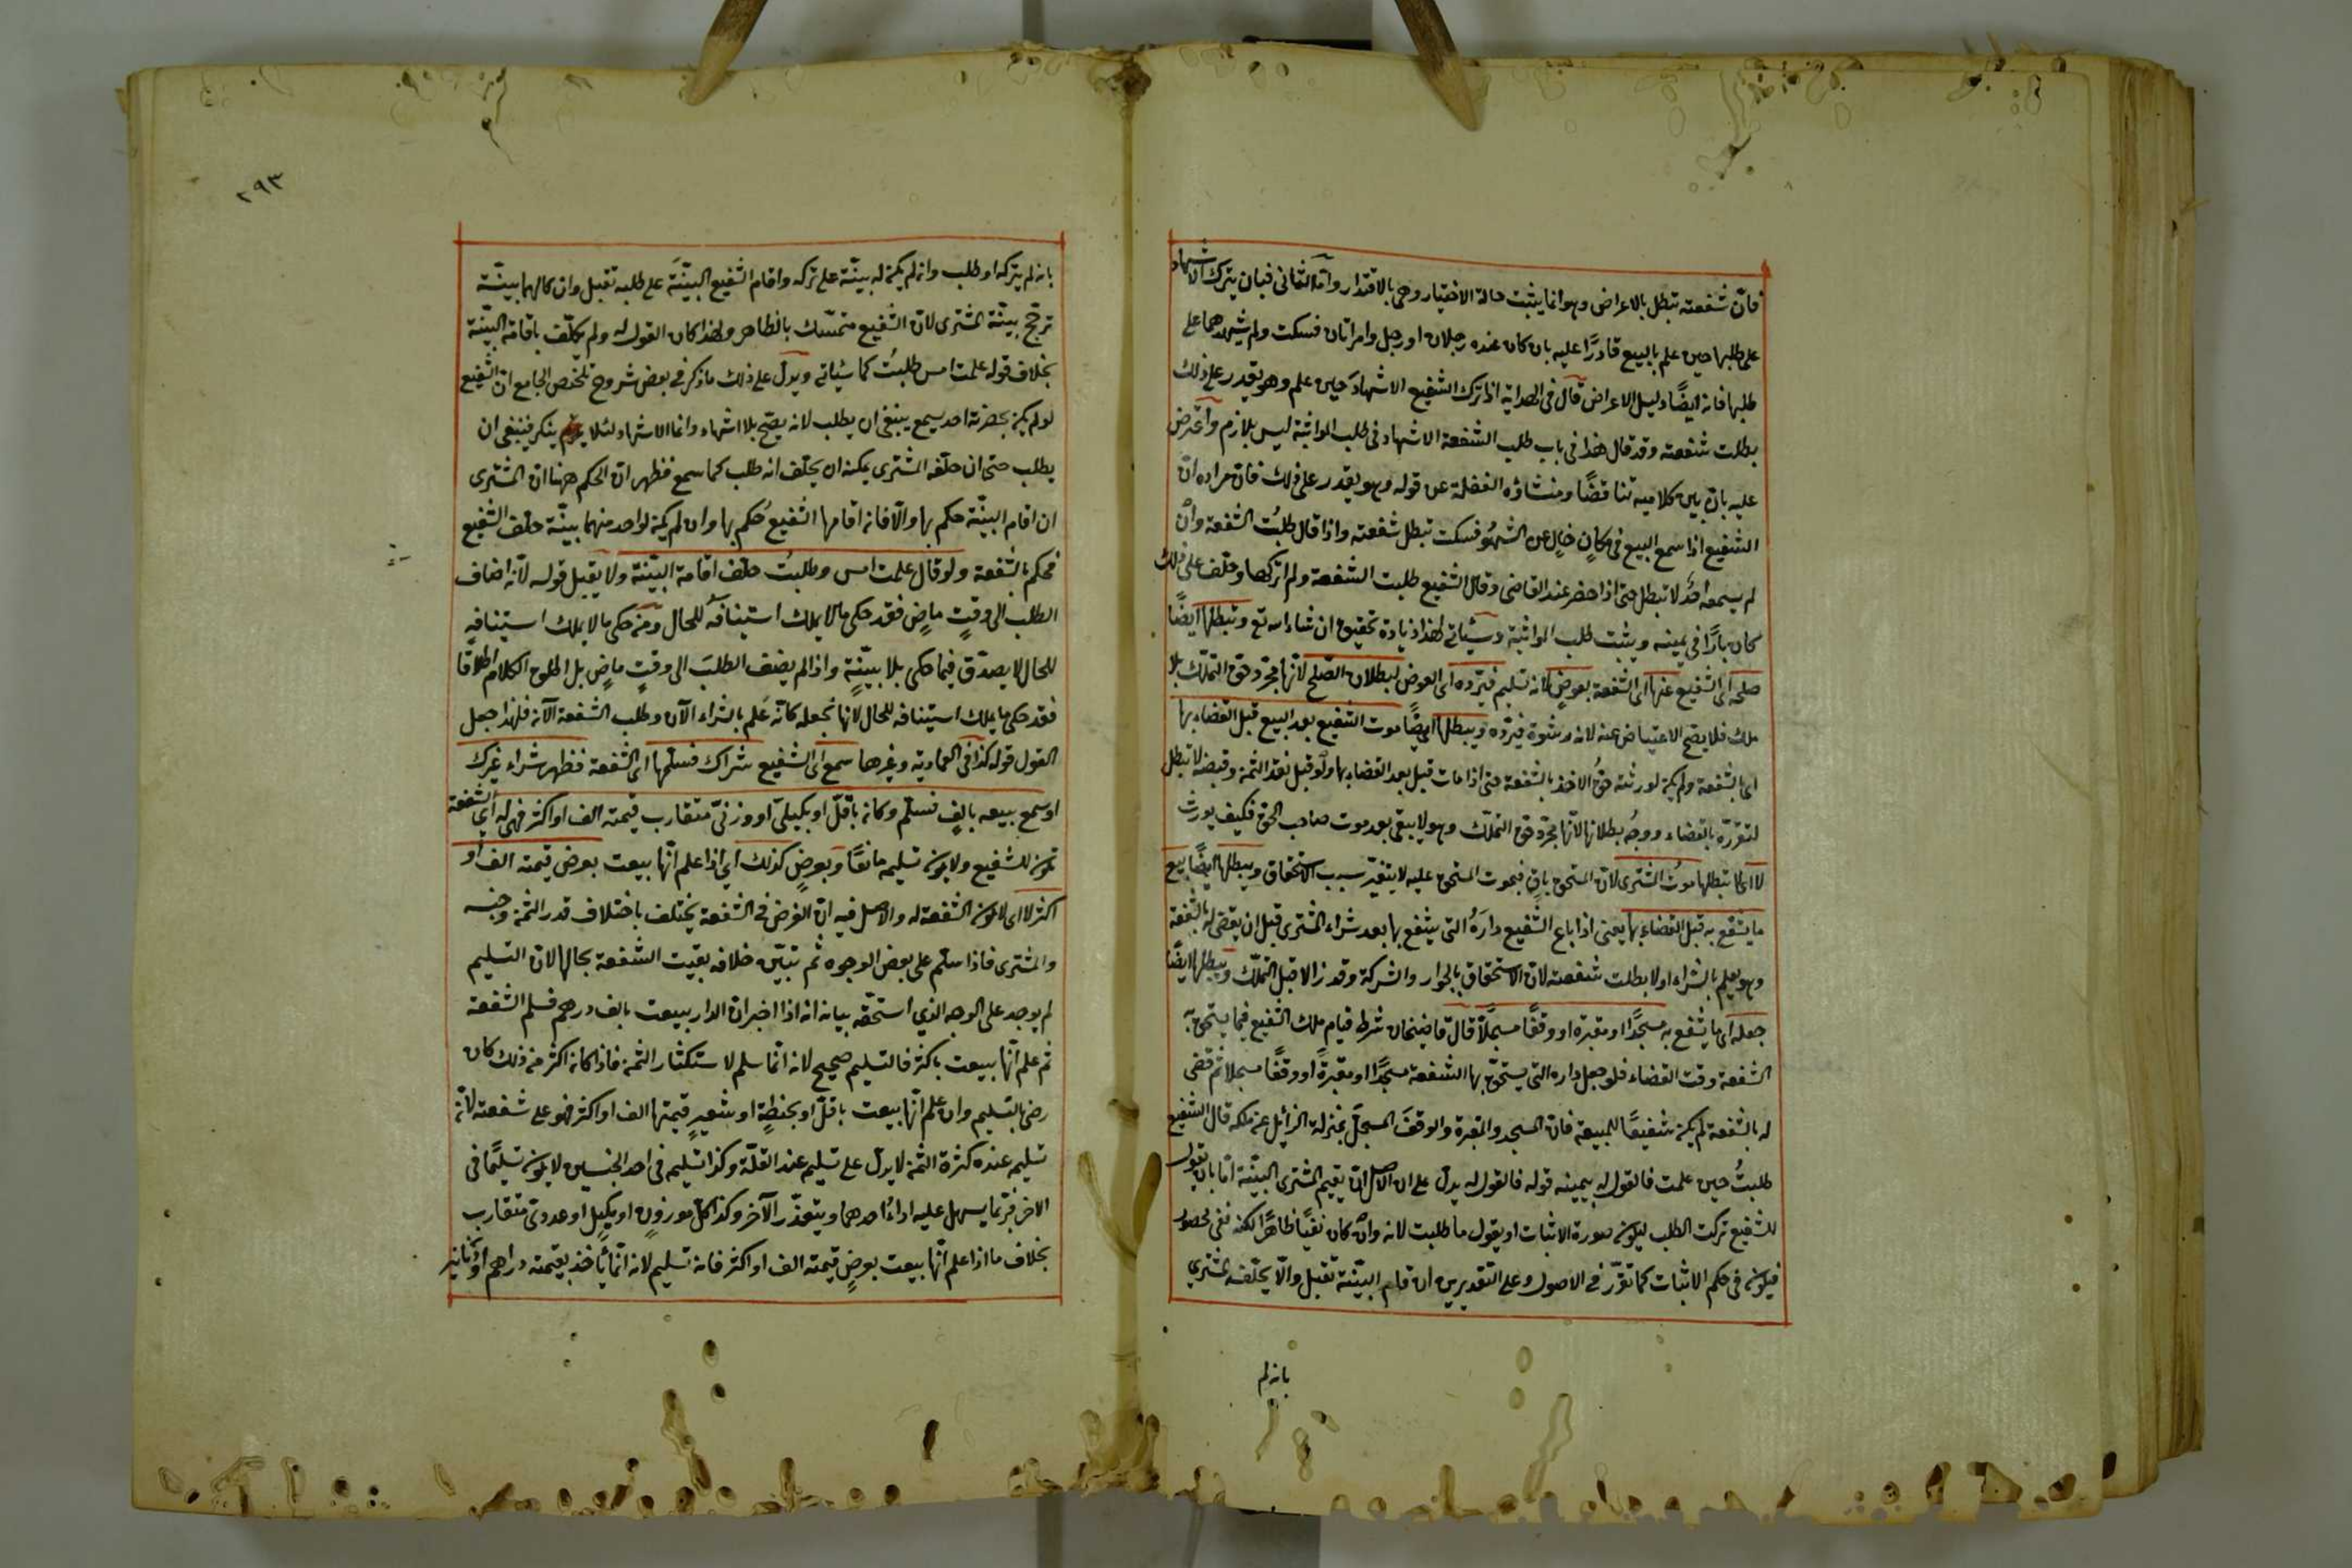 فانّ شفعته تبطل بالاعراض وهو انما يثبت حالة الاختيار وهى بالاقتدار وامّا الثانى فبان يترك الاشهاد
على طلبها حين علم بالبيع قادرًا عليه بان كان عنده رجلان او رجل وامراتان فسكت ولم يشهدهما على
طلبها فانه ايضًا دليل الاعراض قال فى الهداية اذا ترك الشفيع الاشهاد حين علم وهو يقدر على ذلك
بطلت شفعته وقد قال هذا فى باب طلب الشفعة الاشهاد فى طلب المواثبة ليس بلازم واعترض
عليه بانّ بين كلاميه تناقضًا ومنشاؤه الغفلة عن قوله وهو يقدر على ذلك فان مراده انّ
الشفيع اذا سمع البيع فى مكانٍ خالٍ عن الشهود فسكت تبطل شفعته واذا قال طلبتُ الشفعة وان
لم يسمعه احدٌ لا تبطل حتى اذا حضر عند القاضى وقال الشفيع طلبت الشفعة ولم اتركها وحلف على ذلك
كان بارًا فى يمينه ويثبت طلب المواثبة وسيأتى لهذا زيادة تحقيق ان شاء الله تع وتبطلها ايضًا
صلحه اى الشفيع عنها اى الشفعة بعوضٍ لانه تسليم فيرده اى العوض لبطلان الصّلح لأنها مجرد حق التملّك بلا
ملك فلا يصح الاعتياض عنه لانه رشوة فيردّه ويبطلها ايضًا موت الشفيع بعد البيع قبل القضاء بها
اى بالشفعة ولم يكن لورثته حقُ الاخذ بالشفعة حتى اذا مات قبل بعد القضاء بها ولو قبل نقد الثمن وقبضه لا تبطل
لتقرّره بالقضاء ووجهُ بطلانها لأنها مجرد حق التملّك وهو لا يبقى بعد موت صاحب الحق فكيف يورث
لا اى لا تبطلها موتُ المشترى لانّ المستحق باقٍ فبموت المستحق عليه لا يتغيّر سبب الاستحقاق ويبطلها ايضًا بيع
ما يشفع به قبل القضاء بها يعنى اذا باع الشفيع دارَهُ التى يشفع بها بعد شراء المشترى قبل ان يقضى له بالشفعة
وهو يعلم بالشراء او لا بطلت شفعته لانّ الاستحقاق بالجوار والشركة وقد زالا قبل التملّك ويبطلها ايضًا
جعله اى ما يشفع به مسجدًا او مقبرة او وقفًا مسجّلًا قال قاضيخان شرط قيام ملك الشفيع فيما يستحق به
الشفعة وقت القضاء فلو جعل داره التى يستحقّ بها الشفعة مسجدًا او مقبرةً او وقفًا مسجلا ثم قضى
له بالشفعة لم يكن شفيعًا للمبيعة فان المسجد والمقبرة والوقفَ المسجلَ بمنزلة الزائل عن ملكه قال الشفيع
طلبتُ حين علمت فالقول له بيمينه قوله فالقول له يدل على ان الاصل ان يقيم المشترى البيّنة امّا بان يقول
للشفيع تركت الطلب ليكون صورة الاثبات او يقول ما طلبت لانه وان كان نفيًا ظاهرًا لكنه نفى محصور
فيكون فى حكم الاثبات كما تقرّر فى الاصول وعلى التقديرين ان قام البيّنة تقبل والّا يحلّفه المشترى
بانه لم
٢٩٣
بانه لم يتركه او طلب وان لم يكن له بينّة على تركه واقام الشفيع البيّنَة على طلبه تقبل وان كان لهما بينّة
ترجح بينّة المشترى لانّ الشفيع متمسّك بالظاهر ولهذا كان القول له ولم يكلّف باقامة البيّنة
بخلاف قوله علمت امس طلبتُ كما سيأتى ويدل على ذلك ما ذكر فى بعض شروح تلخيص الجامع انّ الشفيع
لو لم يكن بحضرته احد يسمع ينبغى ان يطلب لانه يصحّ بلا اشهاد وانما الاشهاد لئلا ينكر فينبغى ان
يطلب حتى ان حلّفه المشترى يمكنه ان يحلّف انه طلب كما سمع فظهر انّ الحكم ههنا ان المشترى
ان اقام البيّنة حكم بها والّا فانه اقامها الشفيعُ حُكم بها وان لم يكن لواحد منهما بينّة حلّف الشفيع
فحكم بالشفعة ولو قال علمت امس وطلبتُ حلّف اقامة البيّنة ولا يقبل قوله لانه اضاف
الطلب الى وقتٍ ماضٍ فقد حكى ما لا يملك استينافه للحال ومن حكى ما لا يملك استينافه
للحال لا يصدّق فيما حكى بلا بيّنةٍ واذا لم يضف الطلبَ الى وقتٍ ماضٍ بل اطلق الكلام اطلاقا
فقد حكى ما يملك استينافه للحال لانها نجعله كانّه علم بالشراء الآن وطلب الشفعة الآن فلهذا جعل
القول قوله كذا فى العمادية وغيرها سمع اى الشفيع شراك فسلّمها اى الشفعة فظهر شراء غيرك
او سمع بيعه بالفٍ فسلّم وكان باقلّ او بكيلىّ او وزنىّ متقارب قيمته الف او اكثر فهى له اى الشفعة
تكون للشفيع ولا يكون تسليمه مانعًا وبعوضٍ كذلك اى اذا علم انّها بيعت بعرض قيمته الف او
اكثر لا اى لا تكون الشفعة له والاصل فيه انّ الغرض فى الشفعة يختلف باختلاف قدر الثمن وجنسه
والمشترى فاذا سلّم على بعض الوجوه ثم تبيّن خلافه بقيت الشفعة بحالها لانّ التسليم
لم يوجد على الوجه الذى استحقّه بيانه انه اذا اخبر ان الدار بيعت بالف درهم فسلم الشفعة
ثم علم انّها بيعت باكثر فالتسليم صحيح لانه انّما سلم لاستكثار الثمن فاذا كان اكثر من ذلك كان
رضى بالتسليم وان علم انّها بيعت باقلّ او بحنطةٍ او شعيرٍ قيمتها الف او اكثر فهو على شفعته لانّ
تسليمه عند كثرة الثمن لا يدلّ على تسليمه عند القلّة وكذا تسليمه فى احد الجنسين لا يكون تسليمًا فى
الاخر فربّما يسهل عليه اداءُ احدهما ويتعذّر الآخر وكذا كلّ موزونٍ او مكيلٍ او عددىّ متقارب
بخلاف ما اذا علم انّها بيعت بعرضٍ قيمته الف او اكثر فانه تسليم لانه انّما ياخذ بقيمته دراهم او دنانير